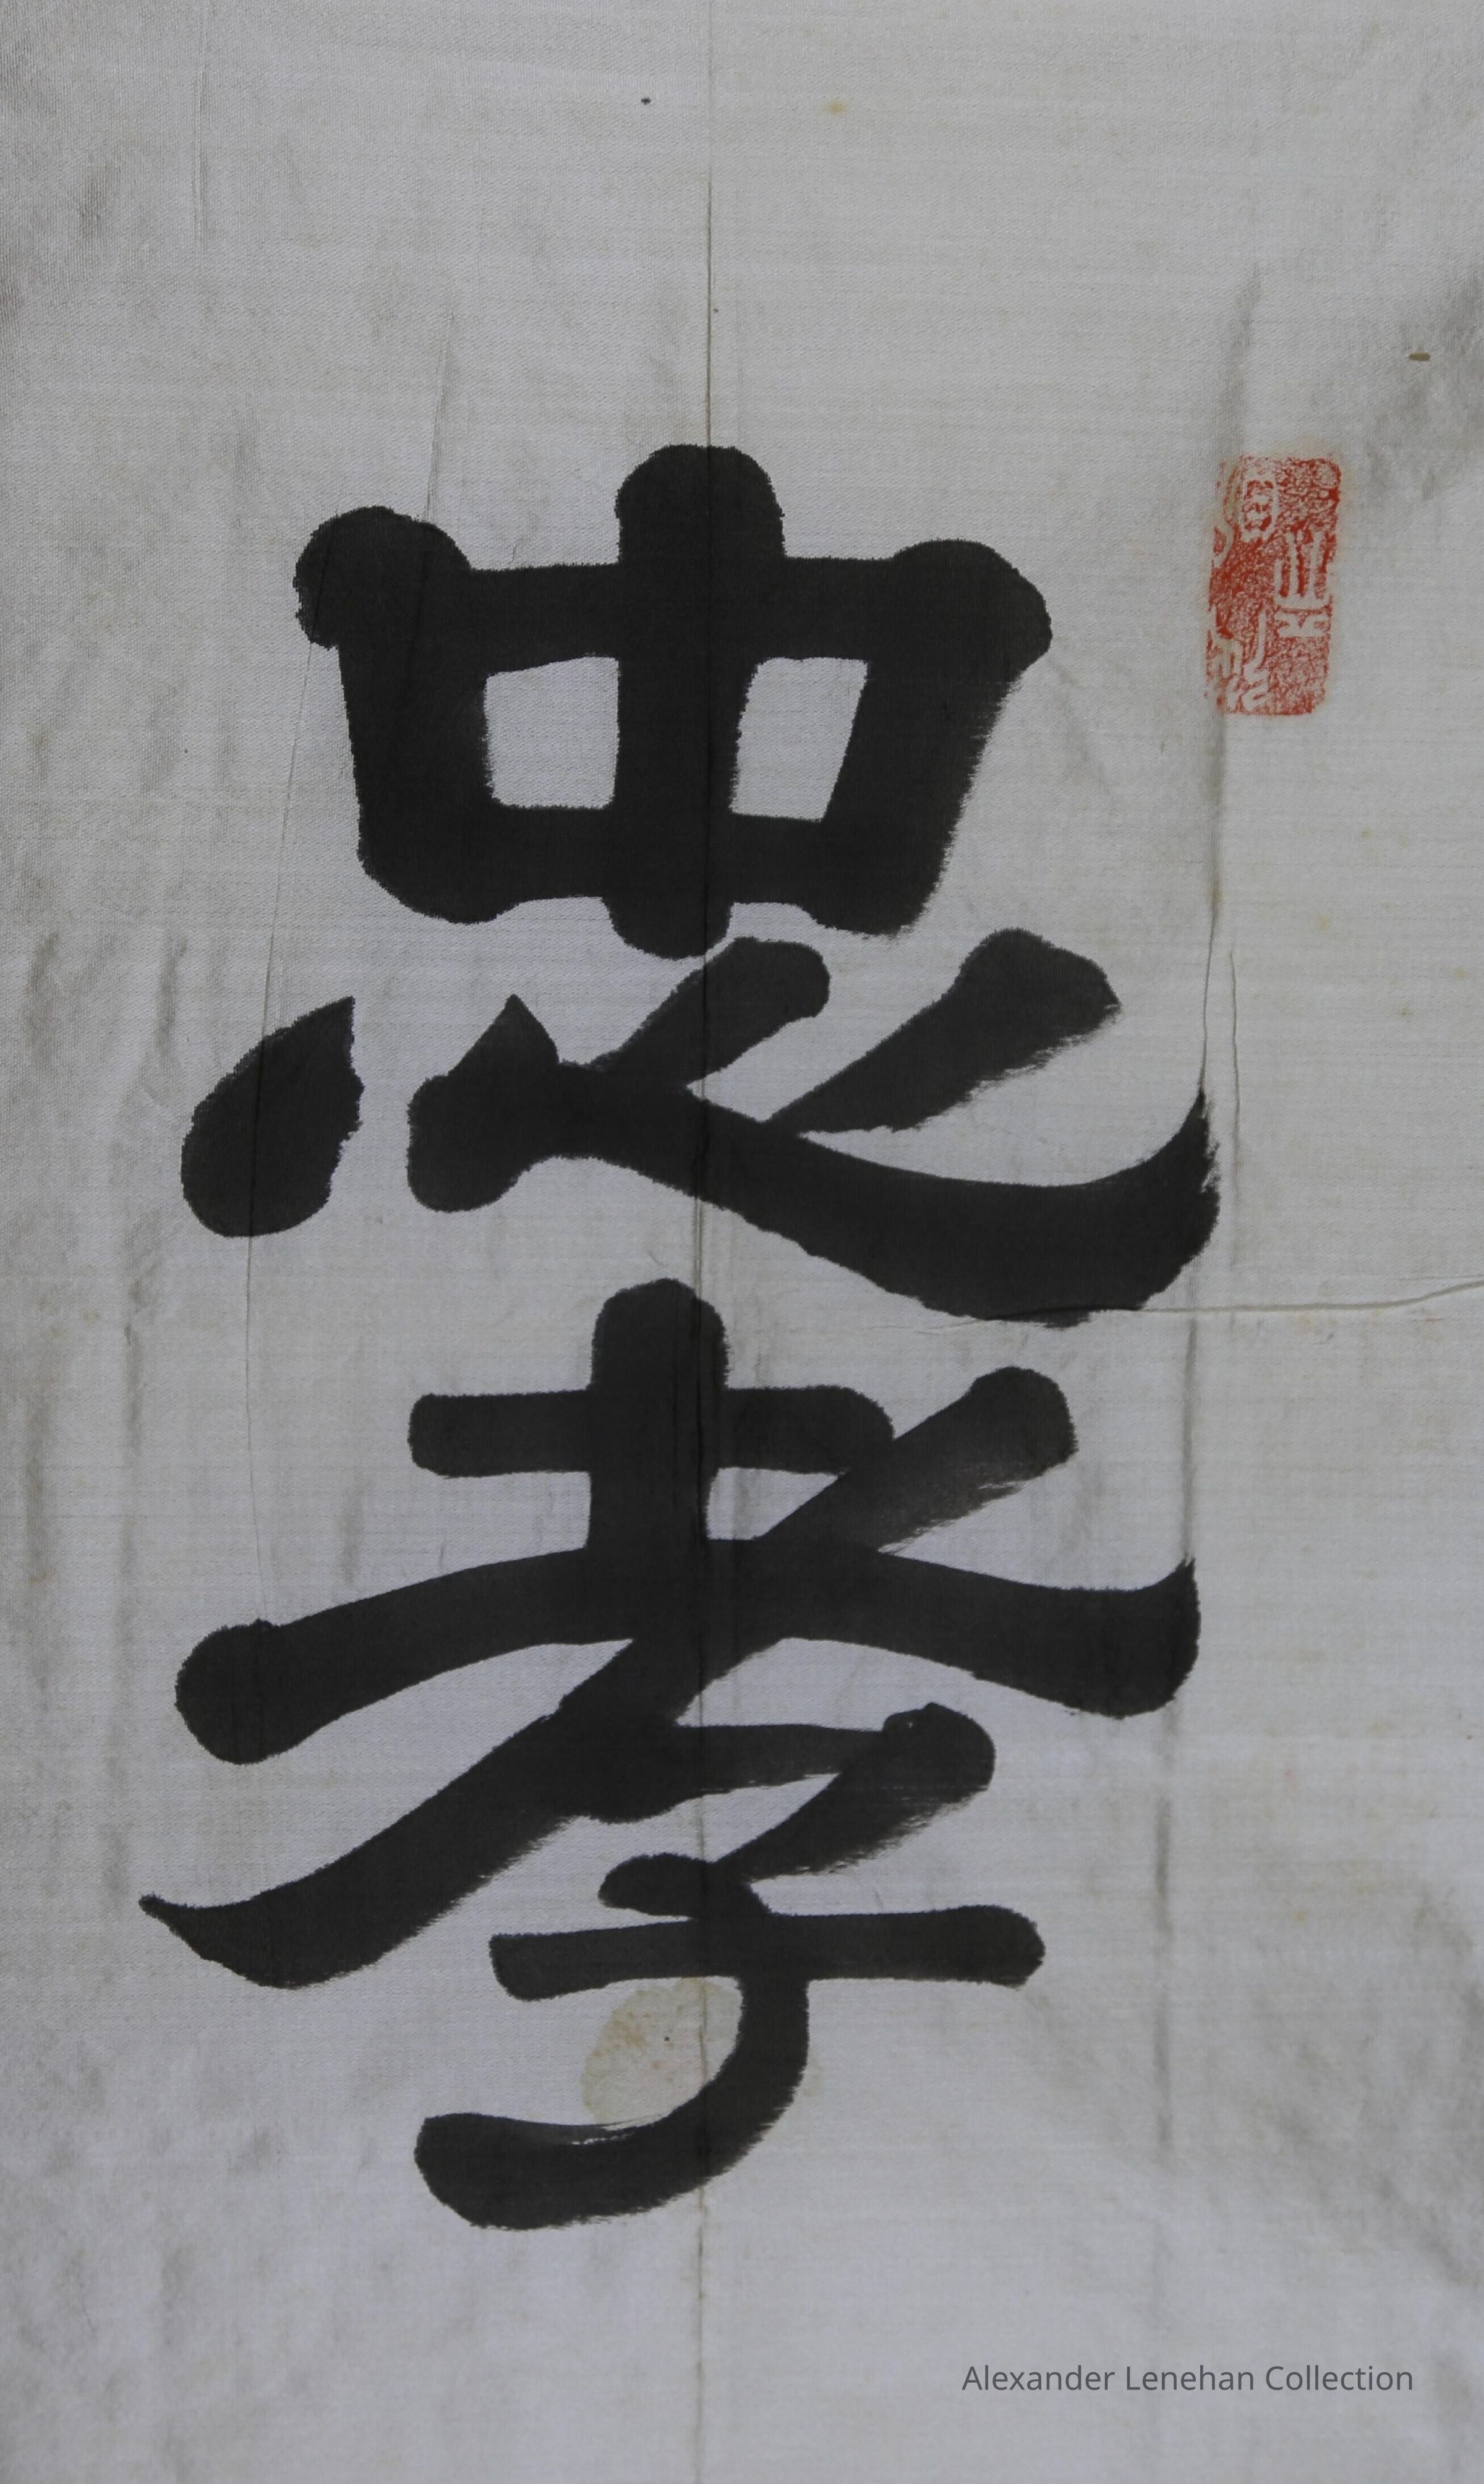 忠孝
Alexander Lenehan Collection